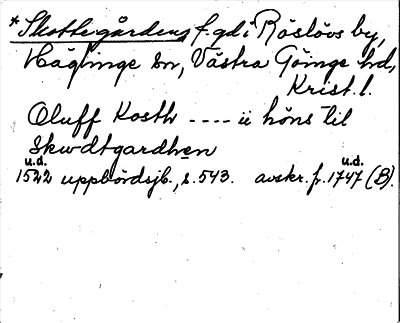 *Skottegården f.gd i Röslövs by,
Häglinge sn, Västra Göinge hd,
Krist. l.
Oluff Kosth ---- ii höns til
Skwdtgardhen
u.d. u.d.
1522 uppbördsjb., s. 543. avskr. fr. 1747 (B).